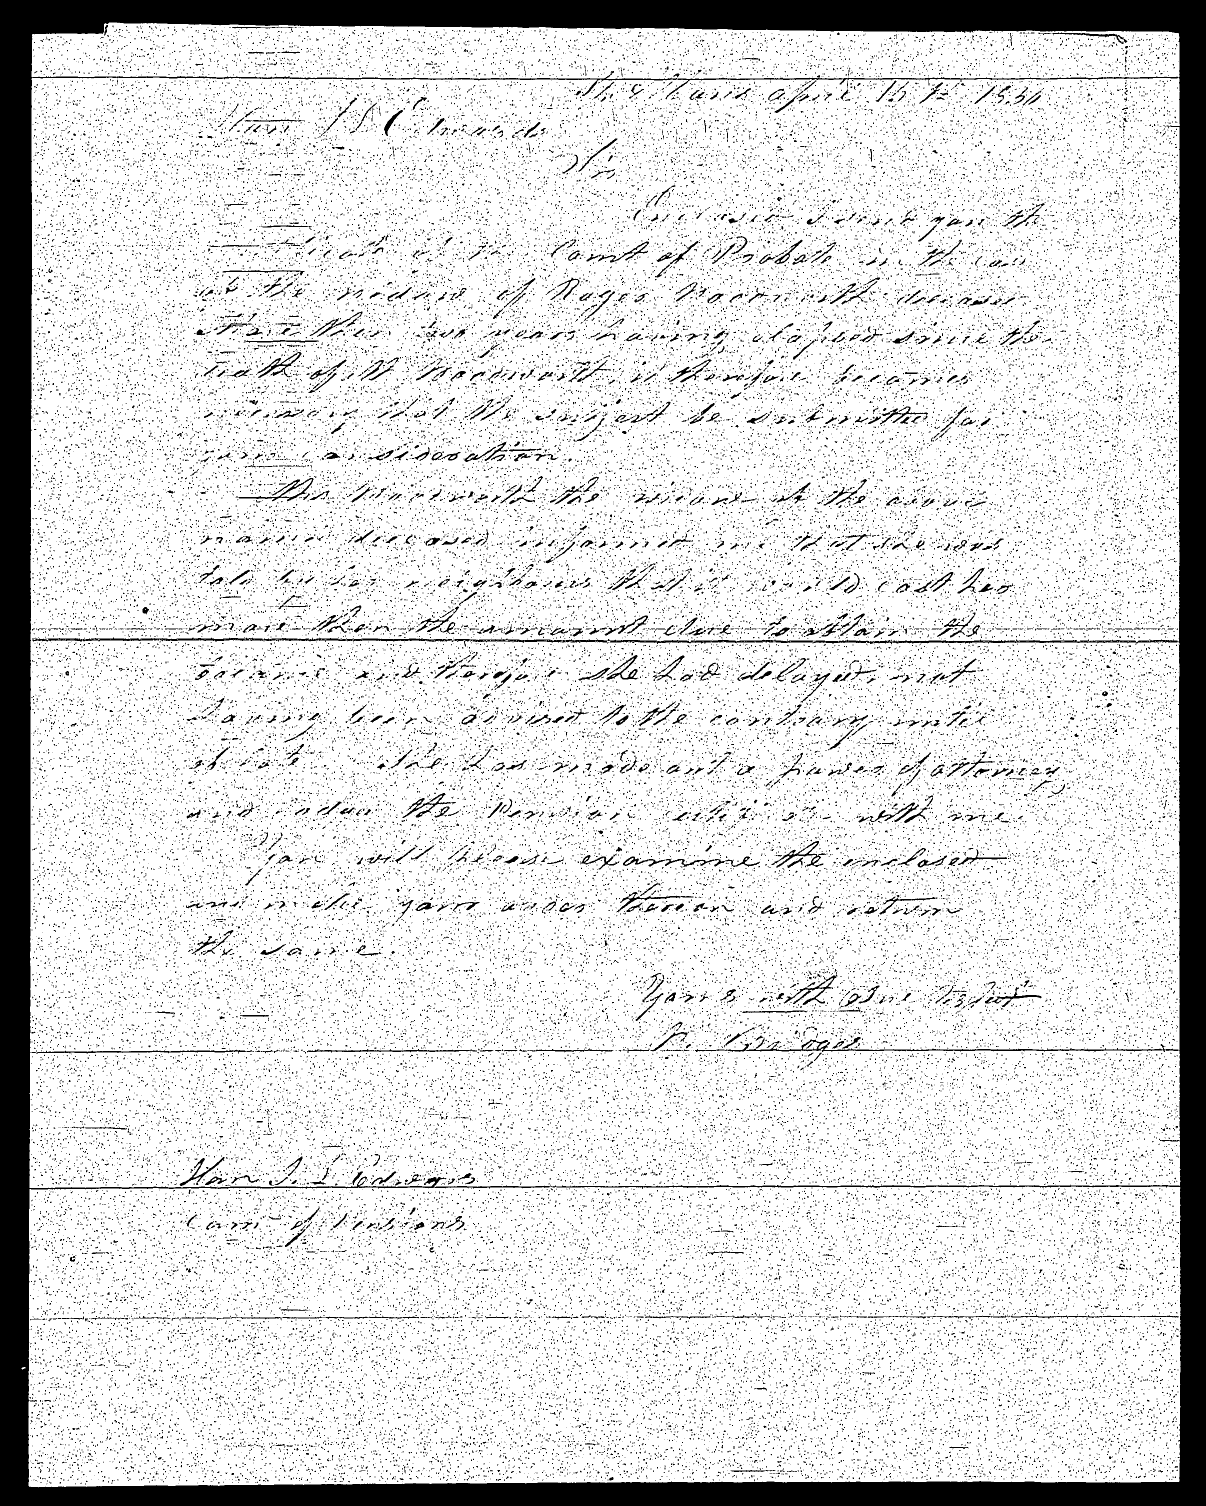 St. Albans April 15th 1850
Hon J L Edwards
Sir
Enclosed I send you the
Certificate of the Court of Probate in the case
of the widow of Roger Woodworth deceased
More then two years having elapsed since the
death of Mr Woodworth, it therefore becomes
necessary that the subject be submitted for
your consideration.
Mrs Woodworth the widow of the above
named deceased informed me that she was
told by her neighbours that it would cost her
more then the amount due to obtain the
and therefore she had delayed, not
having been advised to the contrary until
of late. She has made out a power of attorney
and the Pension certificate with me.
You will please examine the enclosed
and make your order thereon and return
the same.
Yours with due respect
Bridges
Hon J. L. Edwards
Com of Pensions